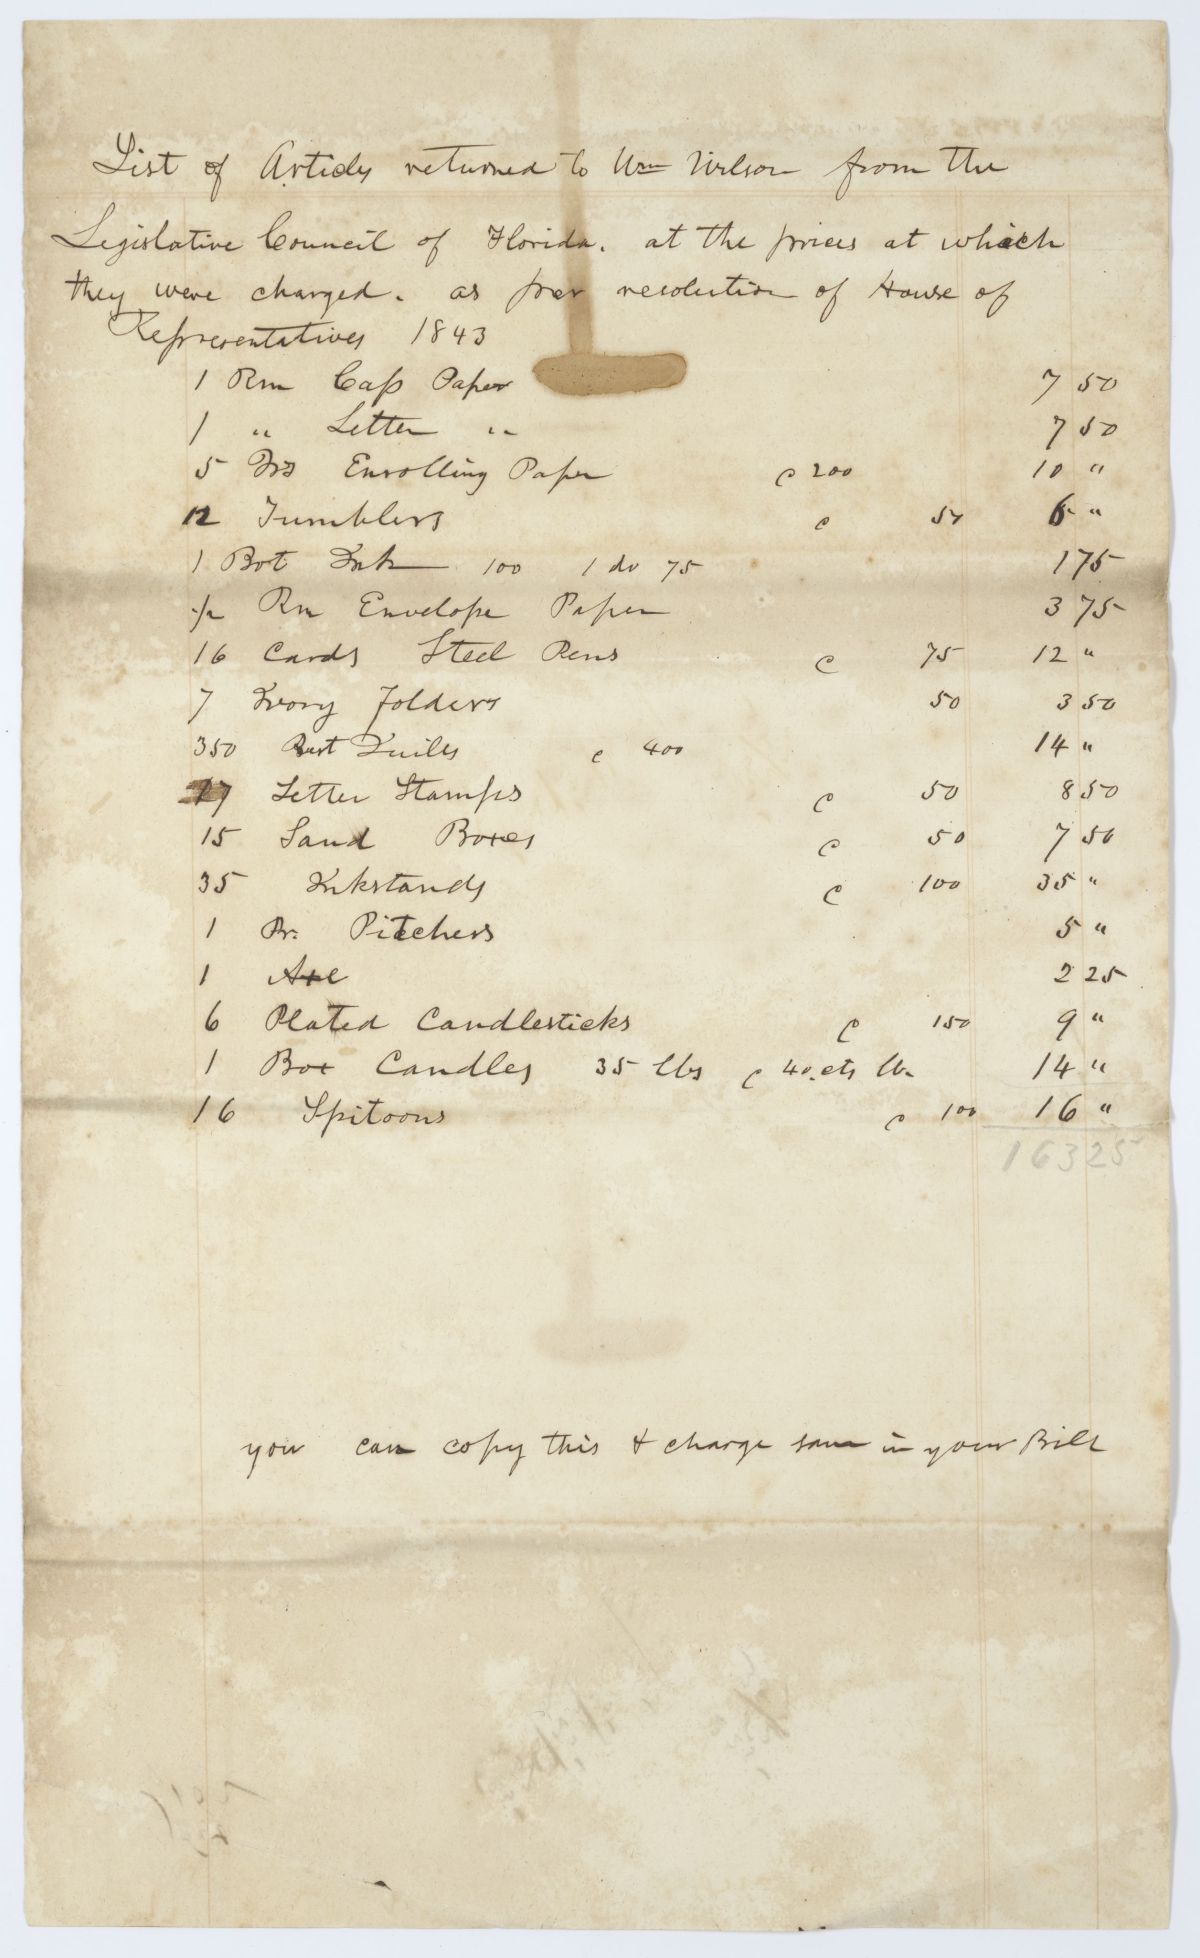 List of Articles returned to Wm Wilson from the
Legislative Council of Florida. at the prices at which
they were charged. as per resolution of House of
Representatives 1843
1 Rm Cap Paper 7 50
1 " Letter " 7 50
5 Enrolling Paper @ 200 10 "
12 Tumblers @ 50 6 "
1 Bot Ink 100 1 do 75 1 75
1/2 Rm Envelope Paper 3 75
16 Cards Steel Pens @ 75 12 "
7 Ivory Folders 50 3 50
350 Best Quills @ 400 14 "
17 Letter Stamps @ 50 8 50
15 Sand Boxes @ 50 7 50
35 Inkstands @ 100 35 "
1 Pr. Pitchers 5 "
1 Axe 2 25
6 Plated Candlesticks @ 150 9 "
1 Box Candles 35 lbs @ 40 cts lb. 14 "
16 Spitoons @ 100 16 "
163 25
you can copy this & charge same in your Bill